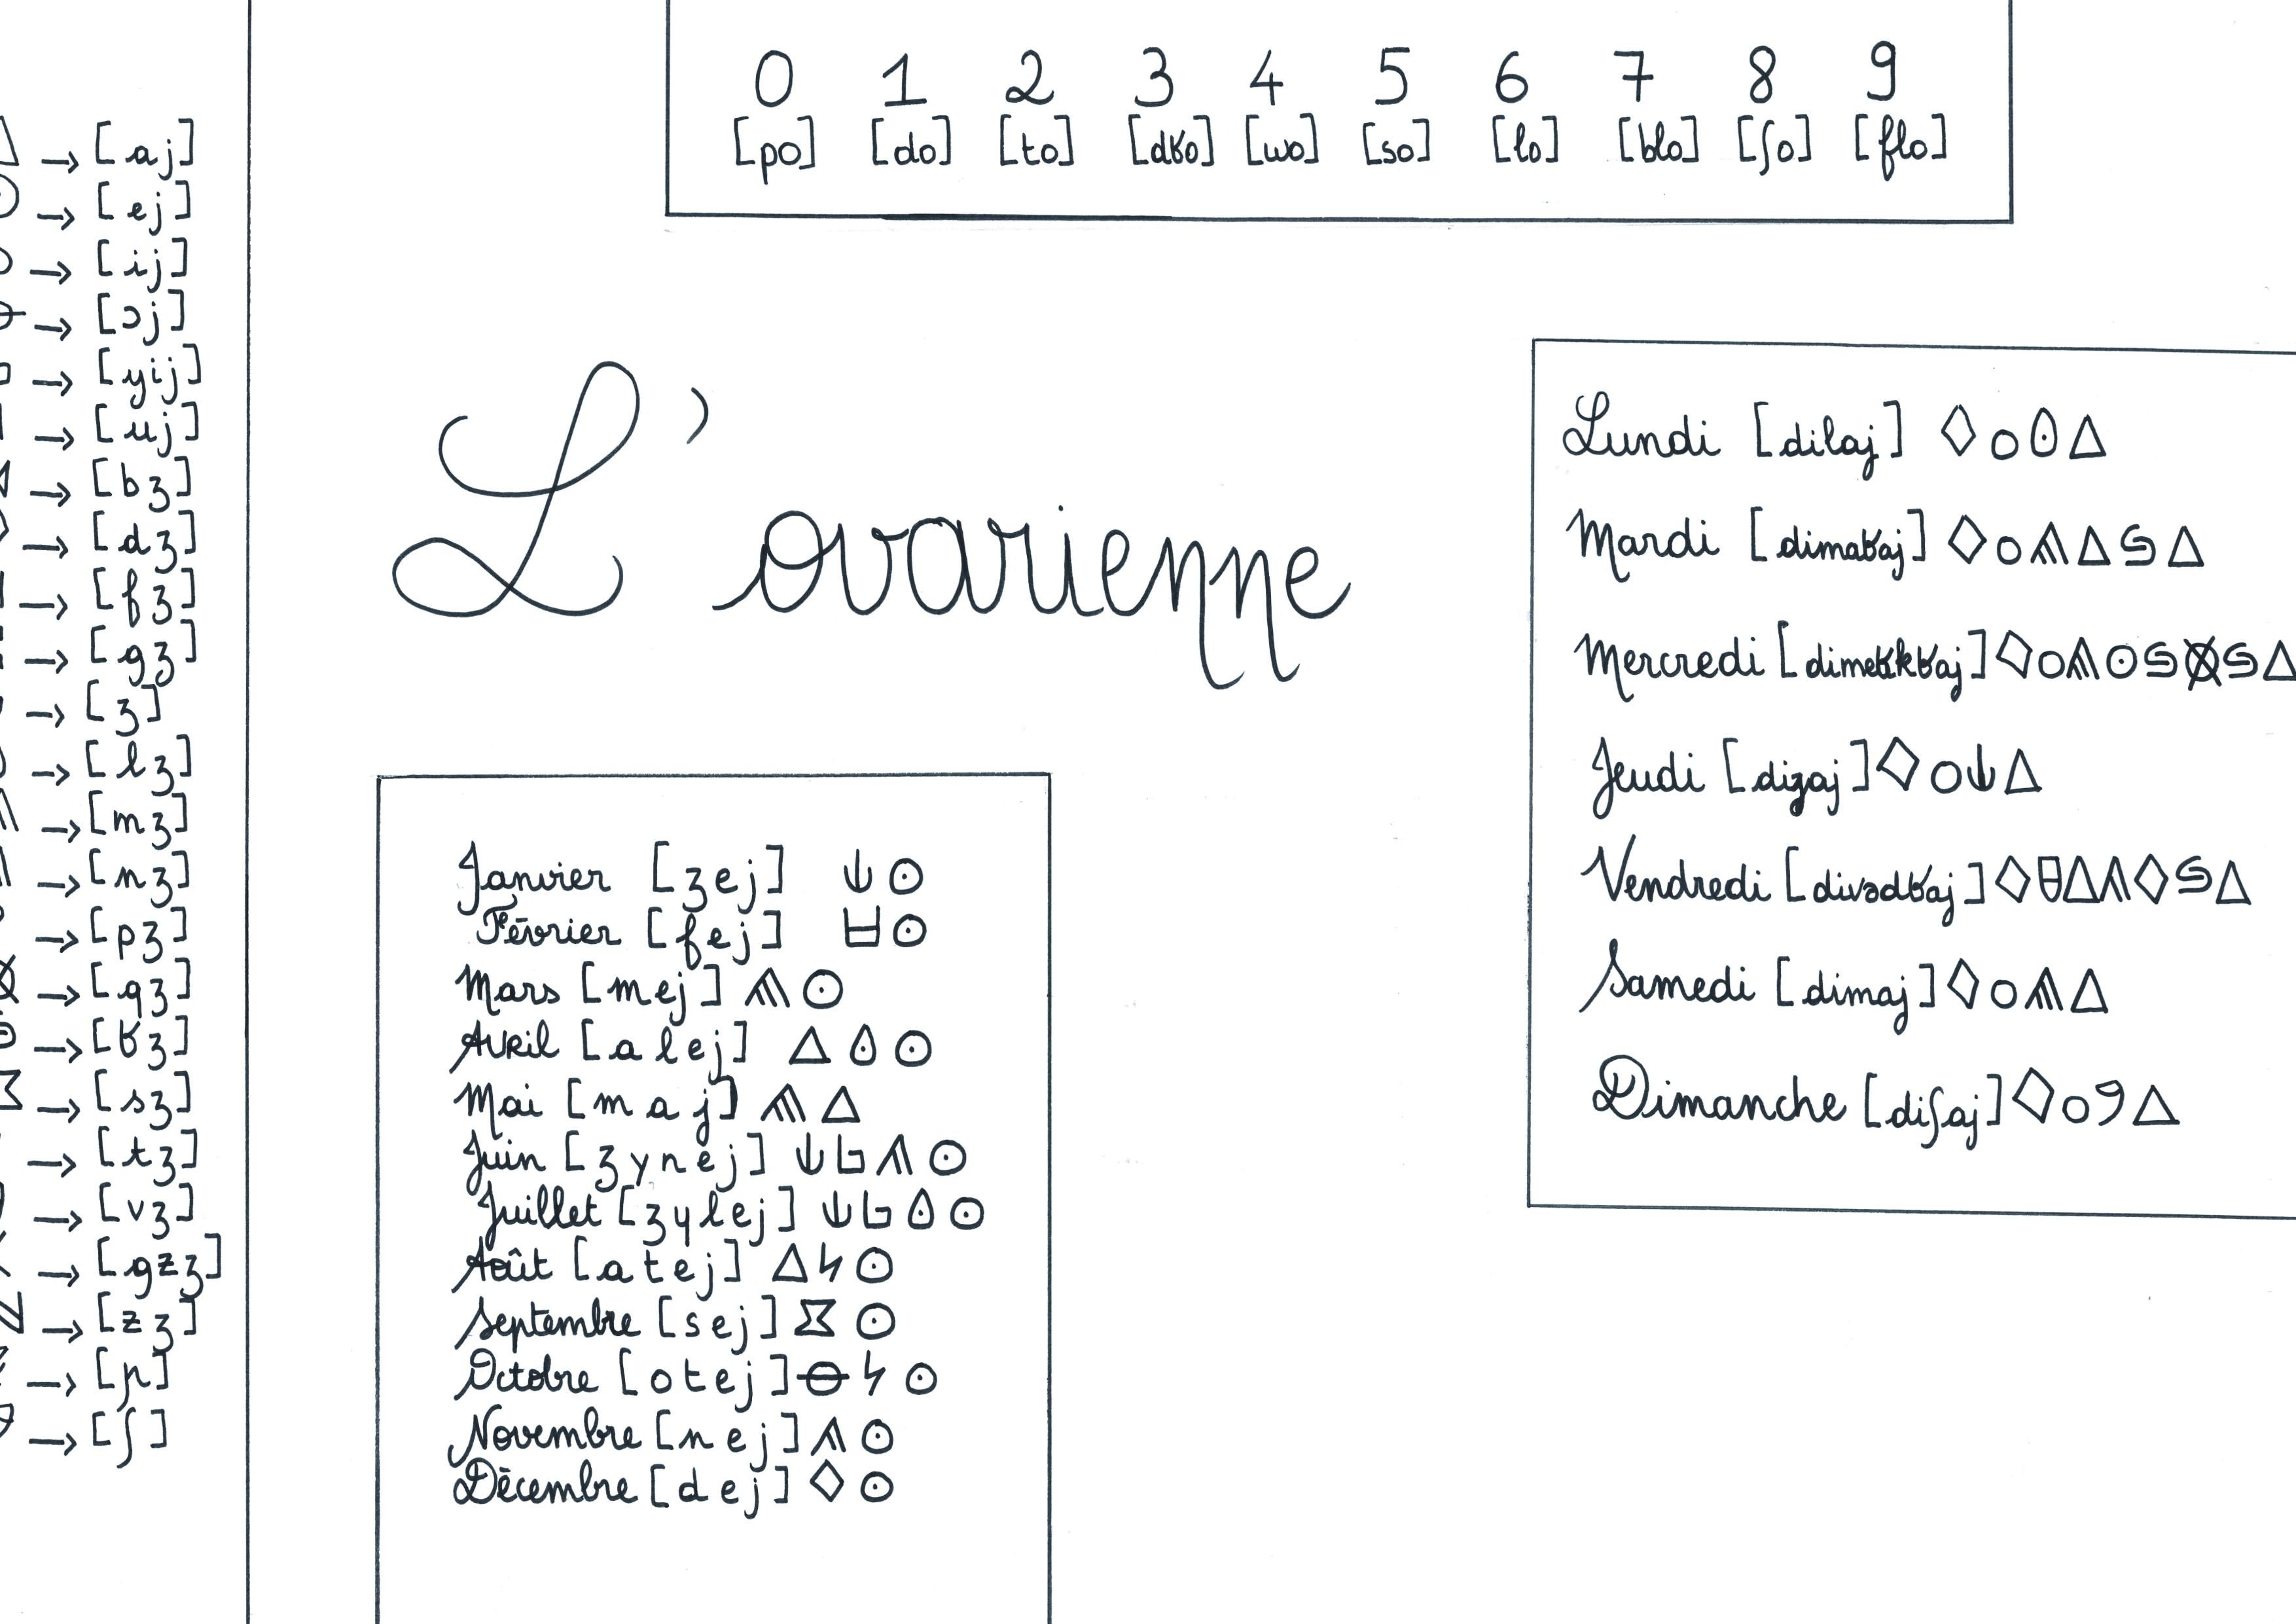 0 1 2 3 4 5 6 7 8 9
[po] [do] [to] [dʁo] [wo] [so] [lo] [blo] [ʃo] [flo]
→ [aj]
→ [ej]
→ [ij]
→ [ɔj]
→ [yij]
→ [uj]
→ [bʒ]
→ [dʒ]
→ [fʒ]
→ [gʒ]
→ [ʒ]
→ [lʒ]
→ [mʒ]
→ [nʒ]
→ [pʒ]
→ [qʒ]
→ [ʁʒ]
→ [sʒ]
→ [tʒ]
→ [vʒ]
→ [gzʒ]
→ [zʒ]
→ [ɲ]
→ [ʃ]
L'ovarienne
Lundi [dilaj]
Mardi [dimaʁaj]
Mercredi [dimeʁkʁaj]
Jeudi [diʒaj]
Vendredi [divədʁaj]
Samedi [dimaj]
Dimanche [diʃaj]
Janvier [ʒej]
Février [fej]
Mars [mej]
Avril [alej]
Mai [maj]
Juin [ʒynej]
Juillet [ʒylej]
Août [atej]
Septembre [sej]
Octobre [otej]
Novembre [nej]
Décembre [dej]